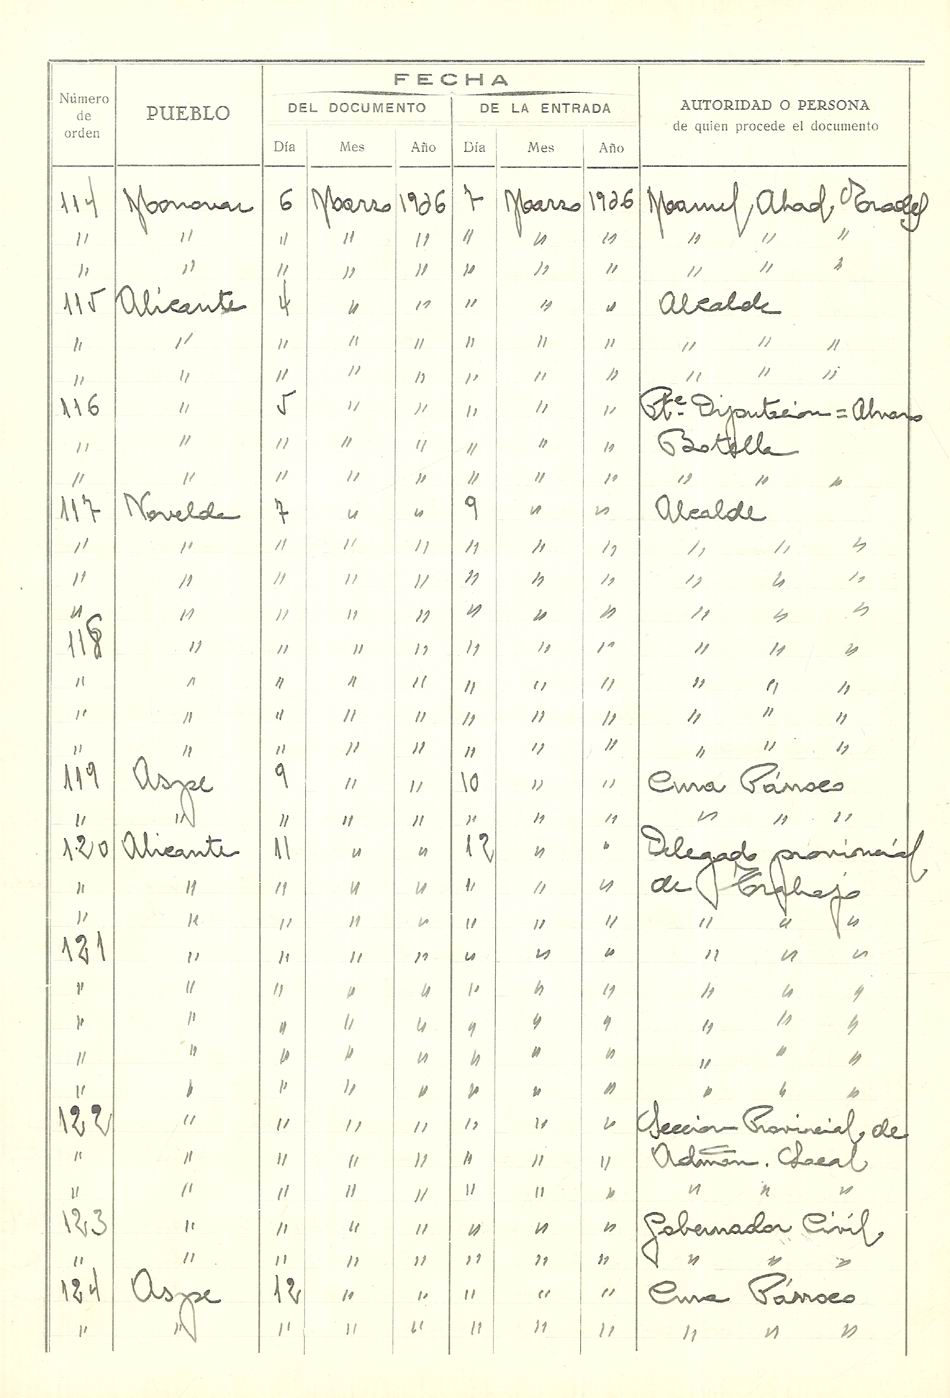 FECHA
Número de orden PUEBLO DEL DOCUMENTO DE LA ENTRADA AUTORIDAD O PERSONA de quien procede el documento
Día Mes Año Día Mes Año
114 Monovar 6 Marzo 1936 7 Marzo 1936 Manuel Abad
" " " " " " " " " " "
" " " " " " " " " " "
115 Alicante 4 " " " " " Alcalde
" " " " " " " " " " "
" " " " " " " " " " "
116 " 5 " " " " " Pte. Diputación = Alvaro
" " " " " " " " Botella
" " " " " " " " " " "
117 Novelda 7 " " 9 " " Alcalde
" " " " " " " " " " "
" " " " " " " " " " "
" " " " " " " " " " "
118 " " " " " " " " " "
" " " " " " " " " " "
" " " " " " " " " " "
" " " " " " " " " " "
119 Aspe 9 " " 10 " " Cura Párroco
" " " " " " " " " " "
120 Alicante 11 " " 12 " " Delegado provincial
" " " " " " " " de Trabajo
" " " " " " " " " " "
121 " " " " " " " " " "
" " " " " " " " " " "
" " " " " " " " " " "
" " " " " " " " " " "
" " " " " " " " " " "
122 " " " " " " " Seccion Provincial de
" " " " " " " " Admón. Local
" " " " " " " " " " "
123 " " " " " " " Gobernador Civil
" " " " " " " " " " "
124 Aspe 12 " " " " " Cura Párroco
" " " " " " " " " " "